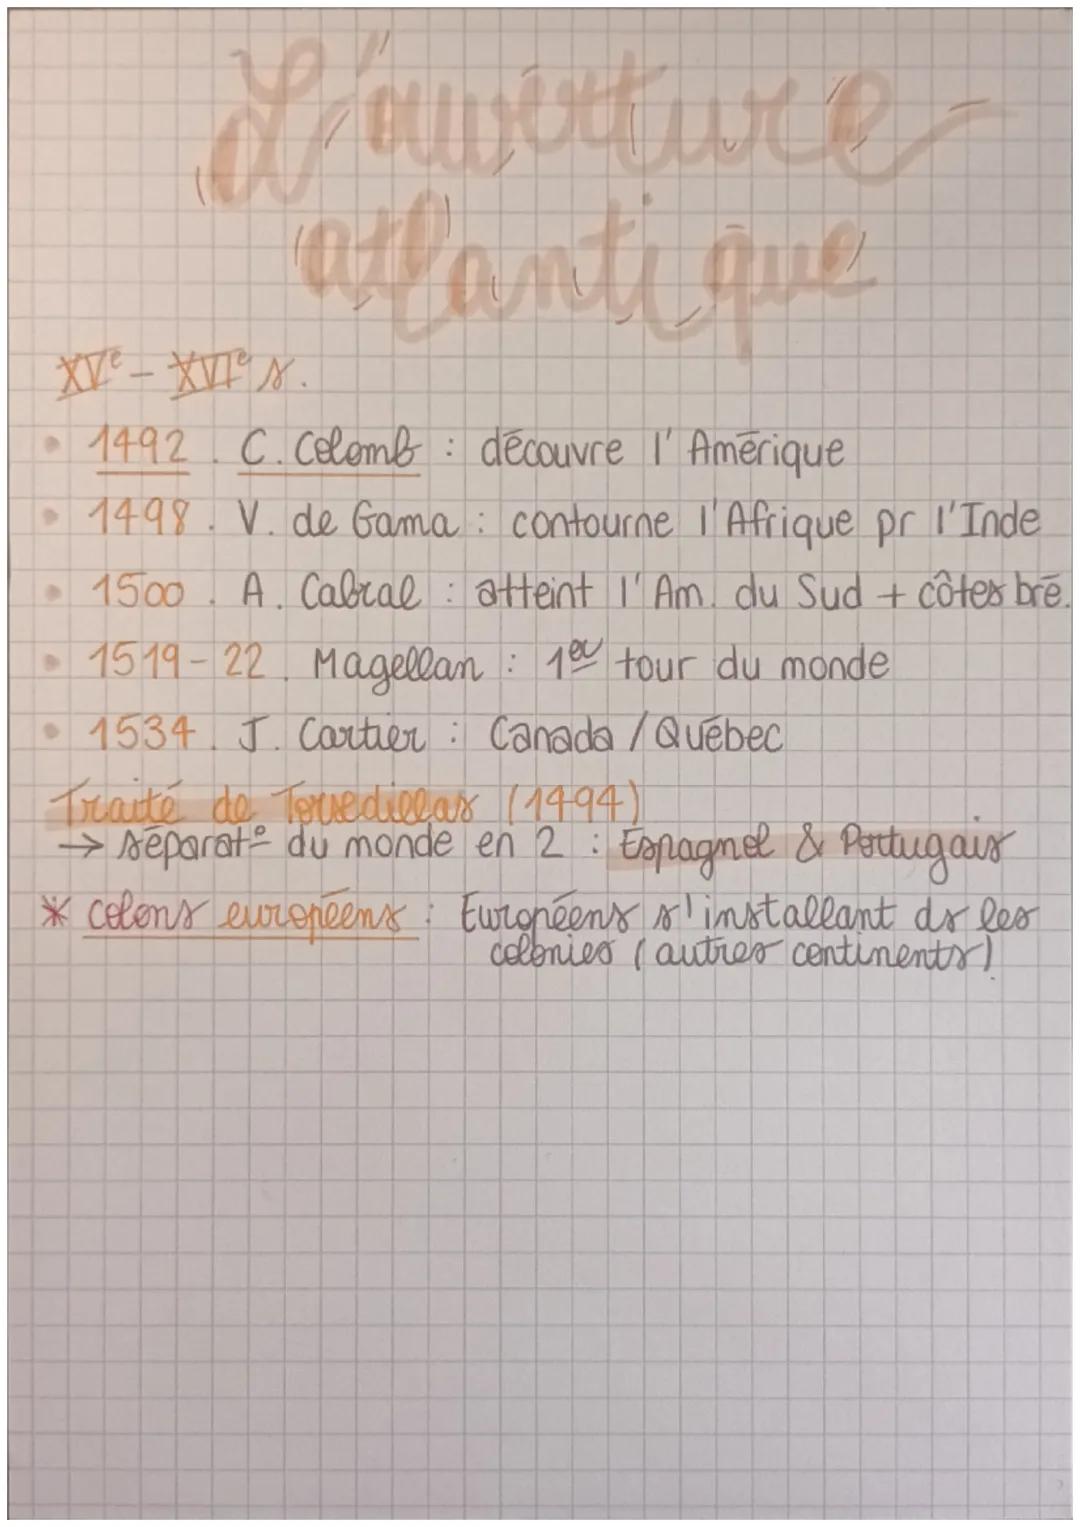 L'ouverture
atlantique
XVᵉ - XVIᵉ s.
• 1492. C. Colomb : découvre l'Amérique
• 1498. V. de Gama : contourne l'Afrique pr l'Inde
• 1500. A. Cabral : atteint l'Am. du Sud + côtes bré.
• 1519-22. Magellan : 1er tour du monde
• 1534. J. Cartier : Canada / Québec
Traité de Torsedillas (1494)
→ séparatº du monde en 2 : Espagnol & Portugais
* colons européens : Européens s'installant ds les
colonies (autres continents)